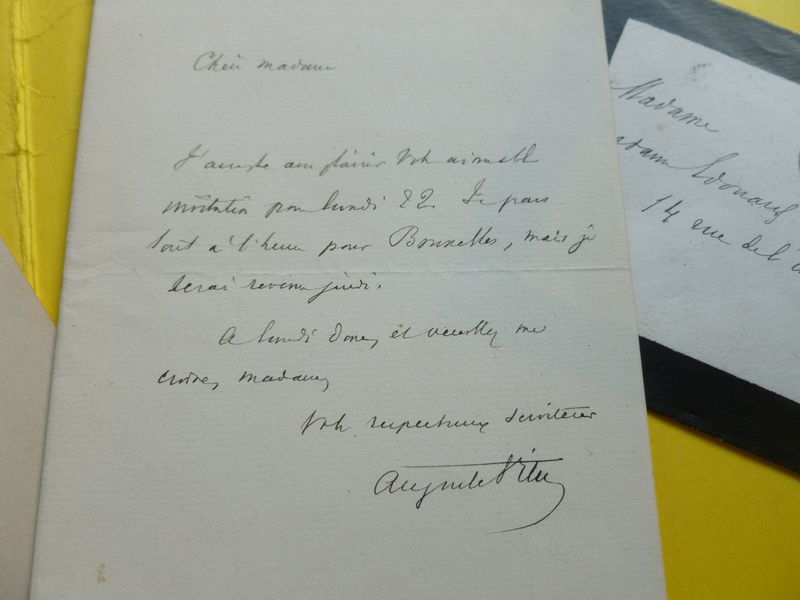 Chère madame
J'accepte avec plaisir votre aimable
invitation pour lundi 22. Je pars
tout à l'heure pour Bruxelles, mais je
serai revenu jeudi.
A lundi donc, et veuillez me
croire, madame,
Votre respectueux serviteur
Auguste Vitu
Madame
14 rue de l